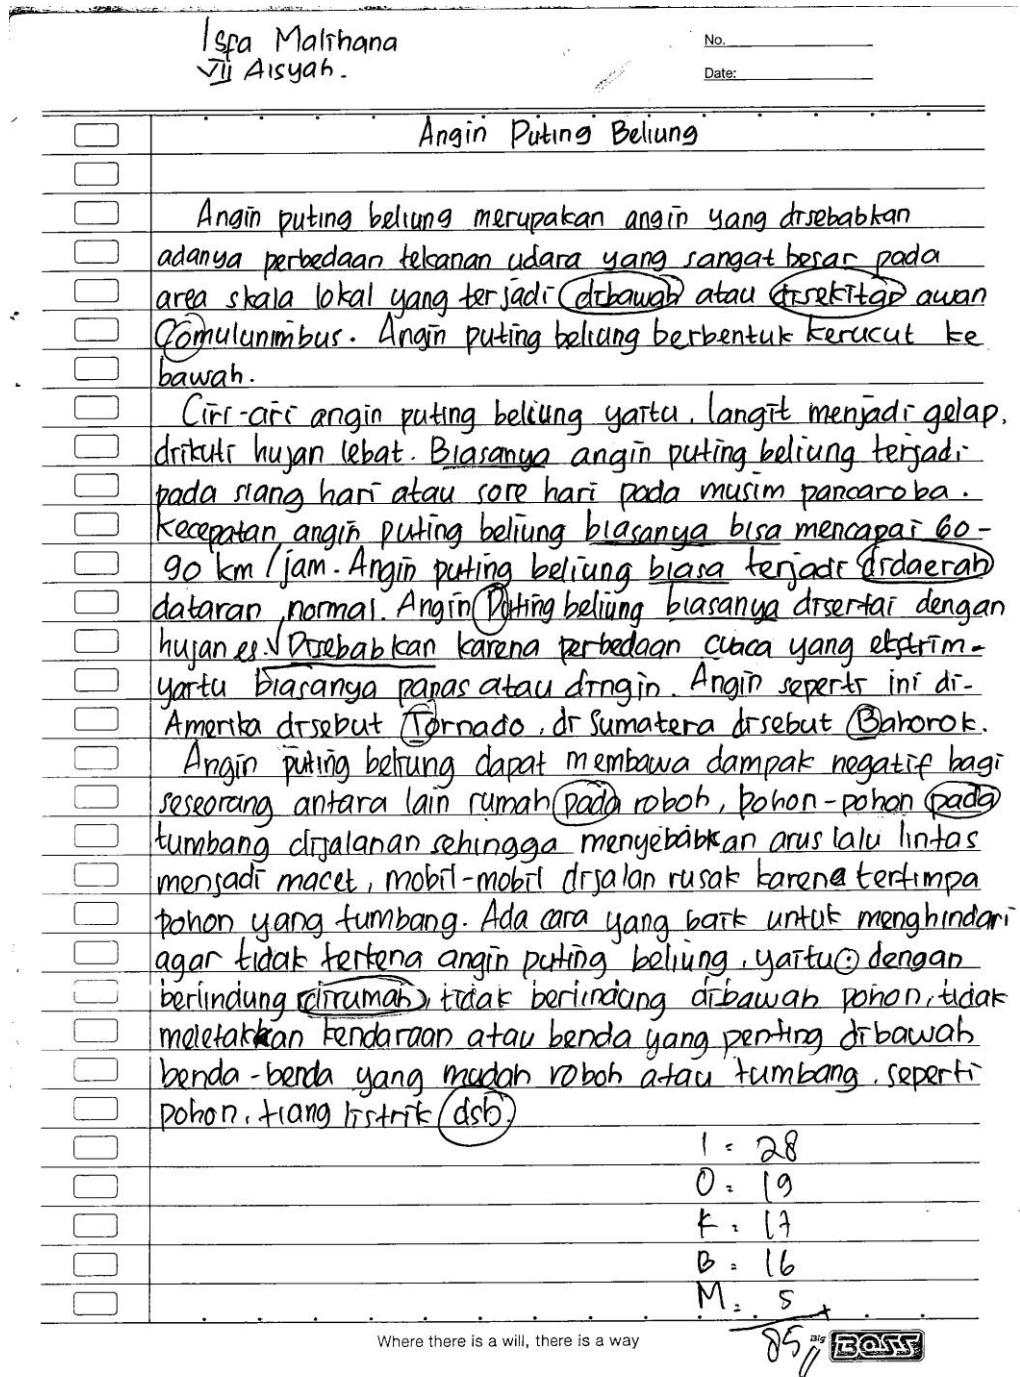 Isfa Malihana
VII Aisyah.
No.
Date:
Angin Puting Beliung
Angin puting beliung merupakan angin yang disebabkan
adanya perbedaan tekanan udara yang sangat besar pada
area skala lokal yang terjadi dibawah atau disekitar awan
Comulunimbus. Angin puting beliung berbentuk kerucut ke
bawah.
Ciri-ciri angin puting beliung yaitu, langit menjadi gelap,
diikuti hujan lebat. Biasanya angin puting beliung terjadi
pada siang hari atau sore hari pada musim pancaroba.
Kecepatan angin puting beliung biasanya bisa mencapai 60-
90 km/jam. Angin puting beliung biasa terjadi didaerah
dataran normal. Angin Puting beliung biasanya disertai dengan
hujan es √ Disebabkan karena perbedaan cuaca yang ekstrim-
yaitu biasanya panas atau dingin. Angin seperti ini di-
Amerika disebut Tornado, di Sumatera disebut Bahorok.
Angin puting beliung dapat membawa dampak negatif bagi
seseorang antara lain rumah pada roboh, pohon-pohon pada
tumbang dijalanan sehingga menyebabkan arus lalu lintas
menjadi macet, mobil-mobil dijalan rusak karena tertimpa
pohon yang tumbang. Ada cara yang baik untuk menghindari
agar tidak terkena angin puting beliung, yaitu: dengan
berlindung dirumah, tidak berlindung dibawah pohon, tidak
meletakkan kendaraan atau benda yang penting dibawah
benda-benda yang mudah roboh atau tumbang, seperti
pohon, tiang listrik dsb.
I = 28
O = 19
K = 17
B = 16
M = 5 +
85
Where there is a will, there is a way
Big BOSS